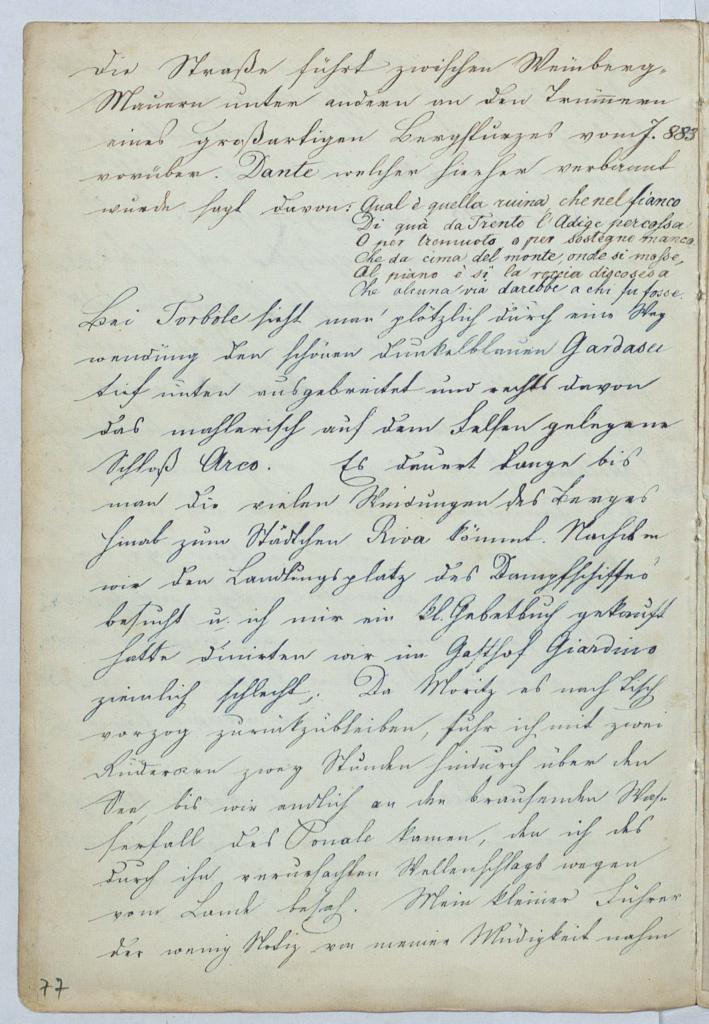 Die Straße führt zwischen Weinberg-
Mauern unter andern an den Trümmern
eines großartigen Bergsturzes vom J. 883
vorüber. Dante welcher hierher verbannt
wurde sagt davon: Qual è quella ruina che nel fianco
Di quà da Trento l'Adige percossa
O per tremuoto o per sostegno manco
Che da cima del monte, onde si mosse,
Al piano è sì la roccia discoscesa
Che alcuna via darebbe a chi su fosse.
Bei Torbole sieht man plötzlich durch eine Weg
wendung den schönen dunkelblauen Gardasee
tief unten ausgebreitet und rechts davon
das mahlerisch auf dem Felsen gelegene
Schloß Arco. Es dauert lange bis
man die vielen Windungen des Berges
hinab zum Städtchen Riva kömmt. Nachdem
wir den Landungsplatz des Dampfschiffes
besucht u. ich mir ein kl. Gebetbuch gekauft
hatte dinirten wir im Gasthof Giardino
ziemlich schlecht. Da Moritz es nach Tisch
vorzog zurückzubleiben, fuhr ich mit zwei
Ruderern zwey Stunden hindurch über den
See, bis wir endlich an den brausenden Was-
serfall des Ponale kamen, den ich des
durch ihn verursachten Wellenschlags wegen
vom Lande besah. Mein kleiner Führer
der wenig Notiz von meiner Müdigkeit nahm
77